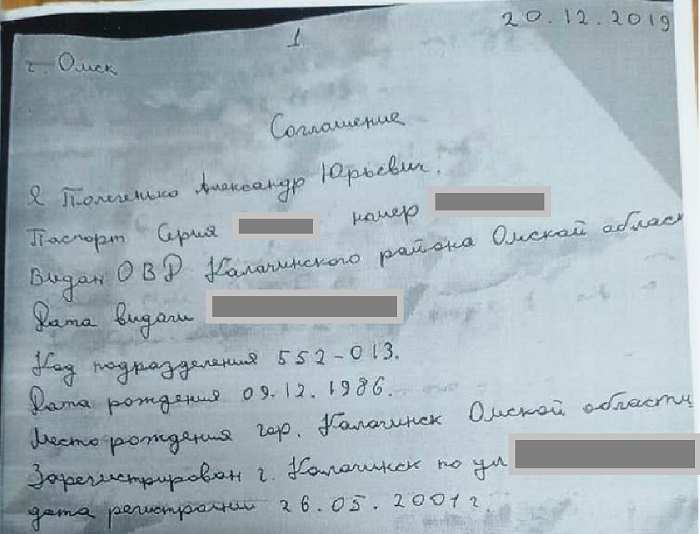 20.12.2019
1
г. Омск
Соглашение
Я Полегенько Александр Юрьевич.
Паспорт Серия номер
Видан ОВД Калачинского района Омской област
Дата видачи
Код подразделения 552-013.
Дата рождения 09.12.1986.
Место рождения гор. Калачинск Омской области
Зарегистрирован г. Калачинск по ул
дата регистрации 26.05.2001 г.